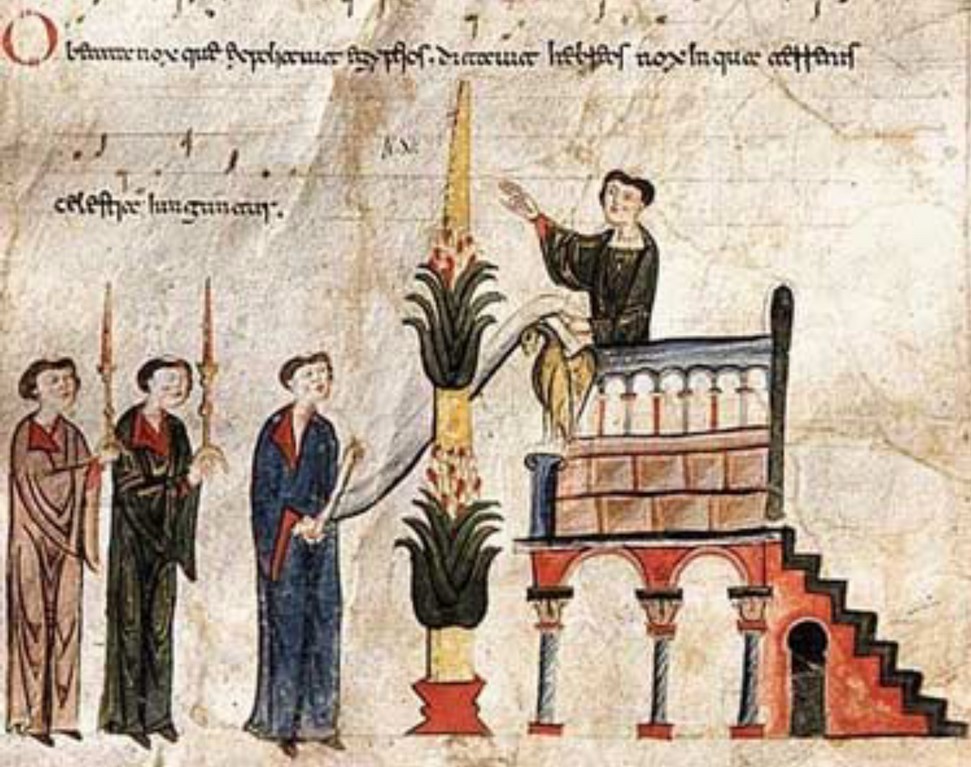 O beata nox que expoliauit egyptios. ditauit hebreos nox in qua terrenis
celestia iunguntur.